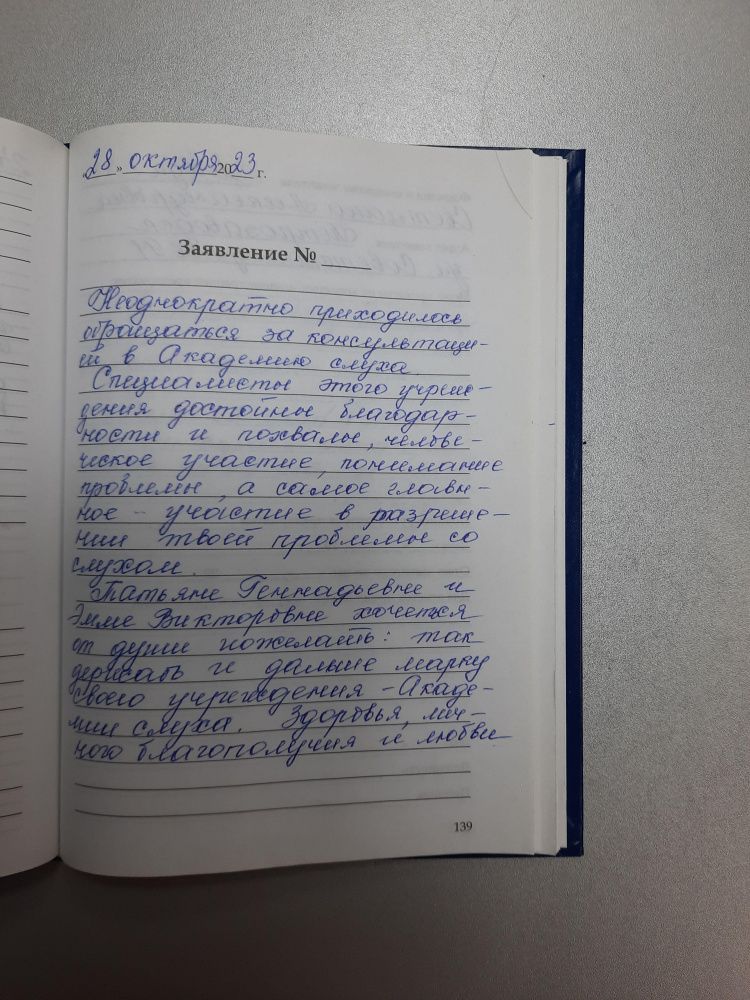 „28“ октября 2023 г.
Заявление № ____
Неоднократно приходилось
обращаться за консультаци-
ей в Академию слуха.
Специалисты этого учреж-
дения достойны благодар-
ности и похвалы, челове-
ческое участие, понимание
проблемы, а самое главн-
ное - участие в разреше-
нии твоей проблемы со
слухом.
Татьяне Геннадьевне и
Эмме Викторовне хочется
от души пожелать: так
держать и дальше марку
своего учреждения - Акаде-
мии слуха. Здоровья, лич-
ного благополучия и любви
139